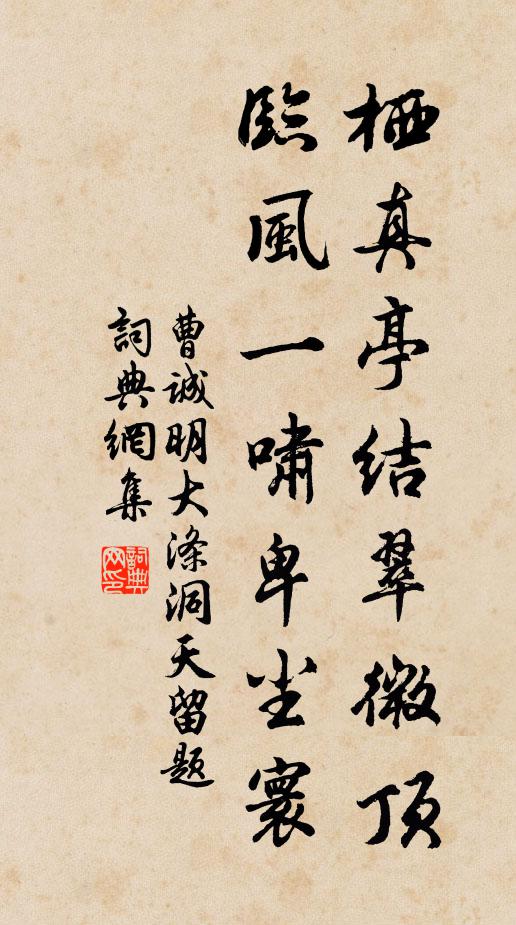 栖真亭结翠微顶
临風一啸卑尘寰
曹诚明大涤洞天留题
詞典網集
詞典网印